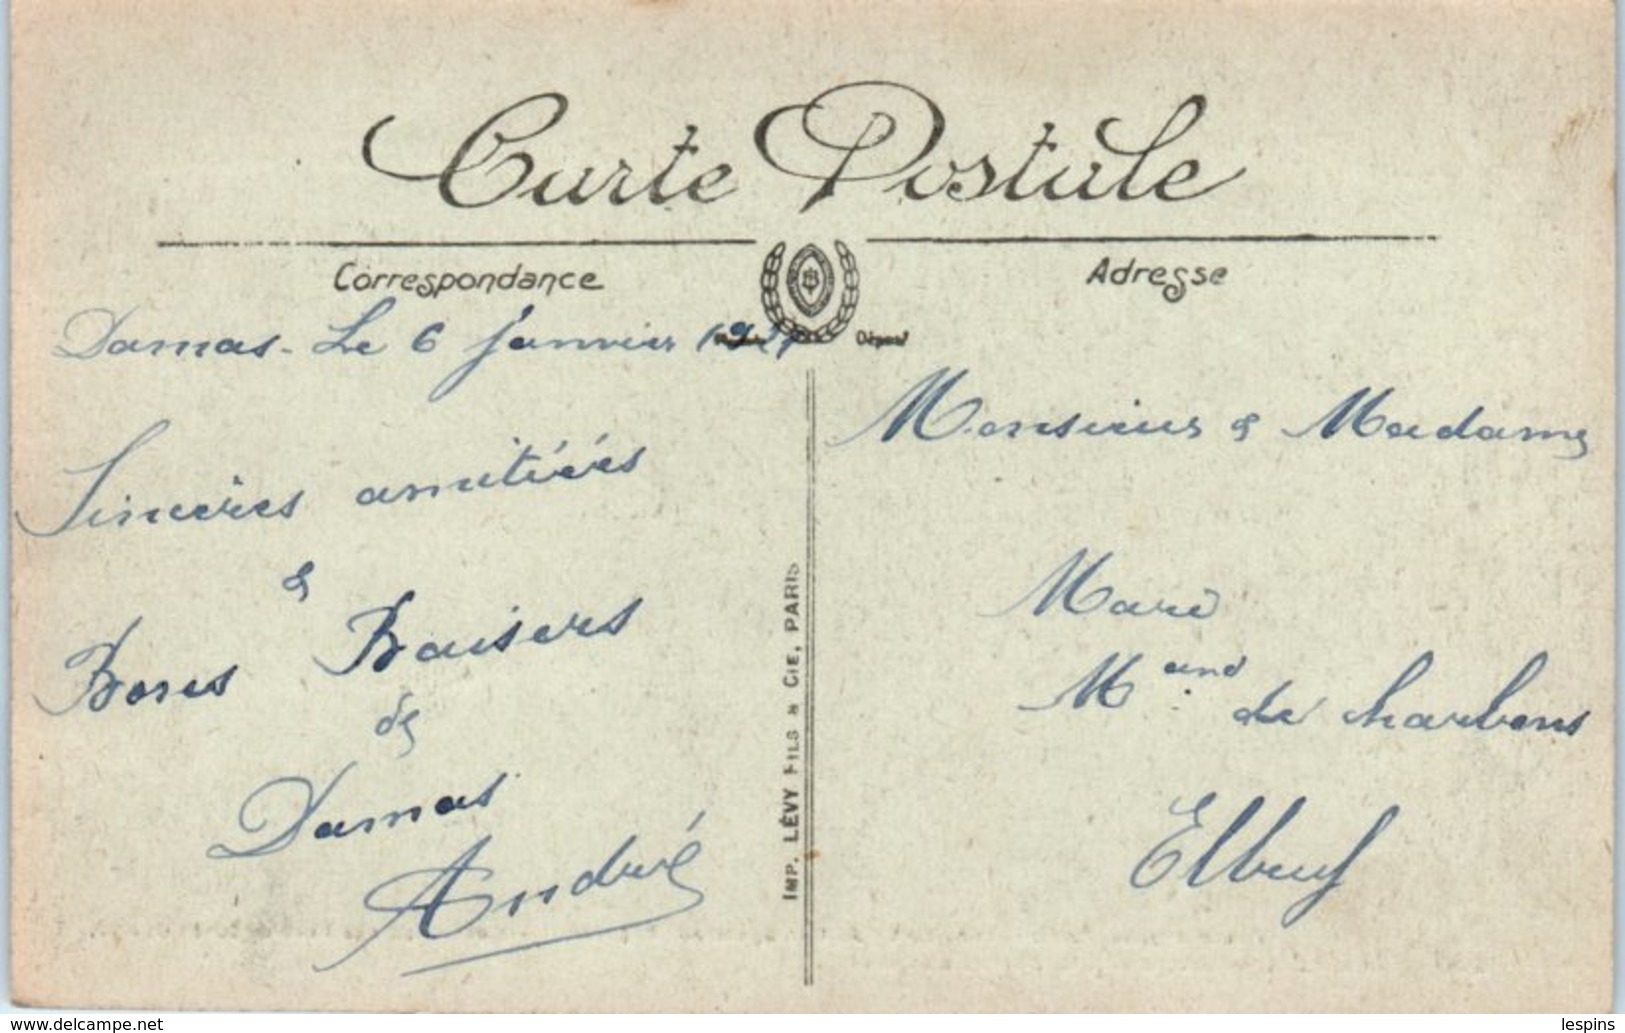 Carte Postale
Correspondance
Adresse
Damas - Le 6 Janvier
Déposé
Sincères amitiées
&
Bons Baisers
de
Damas
André
IMP. LÉVY FILS & CIE, PARIS
Monsieur & Madame
Maré
Mand de charbons
Elbeuf
www.delcampe.net
lespins